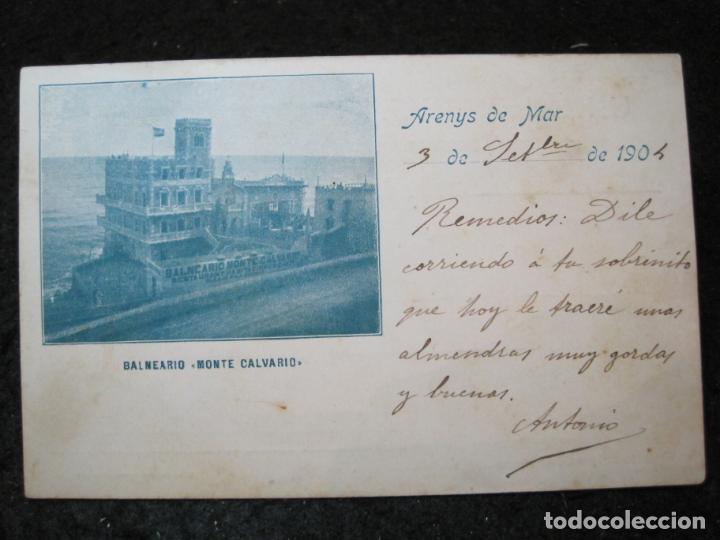 Arenys de Mar
3 de Setbre de 1904
Remedios: Dile
corriendo á tu sobrinito
que hoy le traeré unas
almendras muy gordas
y buenas.
Antonio
BALNEARIO MONTE CALVARIO
BALNEARIO «MONTE CALVARIO»
todocoleccion.net